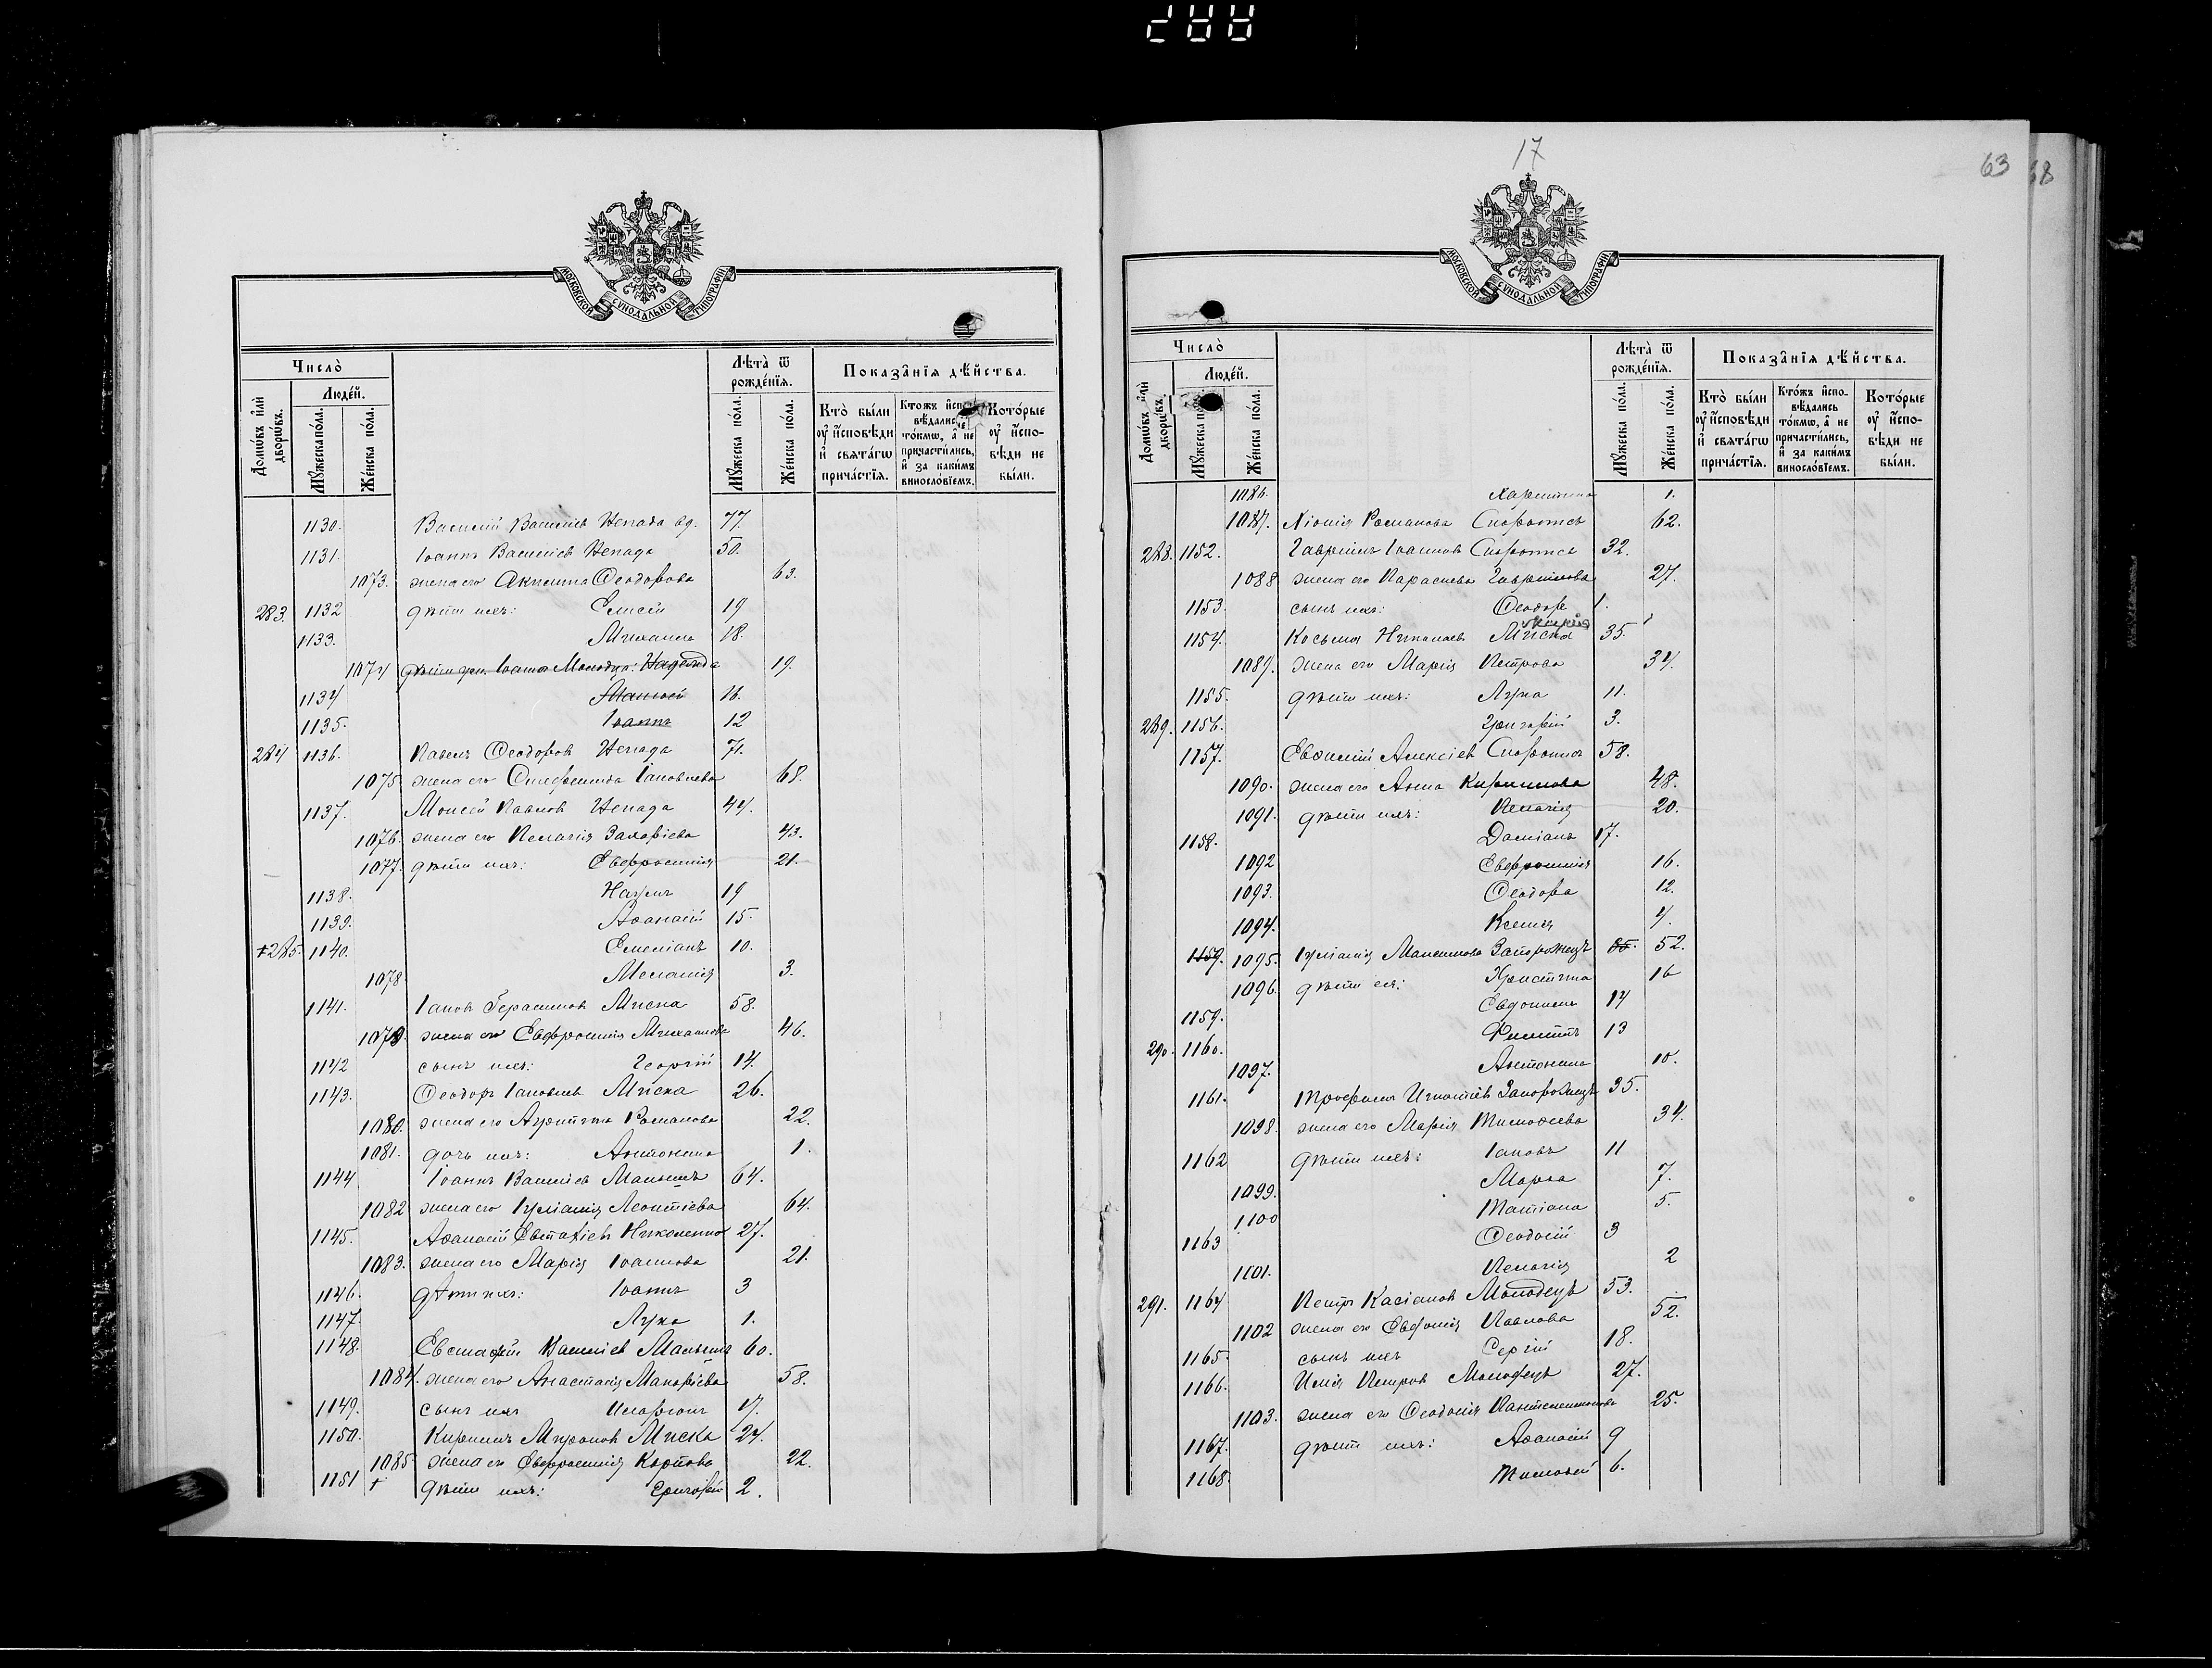 288
МОСКОВСКОЙ СѴНОДАЛЬНОЙ ТИПОГРАФІИ
Число̀
Лѣта̀ ѿ рожде́нїѧ.
Показа̑нїѧ дѣ́йства.
Домѡ́въ и҆лѝ дворѡ́въ.
Люде́й.
Мꙋ́жеска по́ла.
Же́нска по́ла.
Мꙋ́жеска по́ла.
Же́нска по́ла.
Кто̀ бы́ли ᲂу҆ и҆́сповѣди и҆ свѧта́гѡ прича́стїѧ.
Кто́жъ и҆спо- вѣ́дались то́кмѡ, а҆ не причасти́лись, и҆ за каки́мъ винослові́емъ.
Кото́рые ᲂу҆ и҆́спо- вѣди не бы́ли.
1130. Василій Васильевъ Непада вд. 77.
1131. Іоаннъ Васильевъ Непада 50.
1073. жена его Акилина Ѳеодорова 63.
283. 1132 дѣти ихъ: Елисей 19
1133. Михаилъ 18.
1074 дѣти Іоанна Молодца: Надежда 19.
1134 16.
1135. Іоаннъ 12
284 1136. Павелъ Ѳеодоровъ Непада 71.
1075 жена его Іаковлева 68.
1137. Моисей Павловъ Непада 44.
1076. жена его Пелагія Захаріева 43.
1077. дѣти ихъ: Евфросинія 21.
1138. Наумъ 19
1139. Аѳанасій 15.
+285. 1140. Емеліанъ 10.
1078 Меланія 3.
1141. Іаковъ Герасимовъ Миска 58.
1079 жена его Евфросинія Михаилова 46.
1142 сынъ ихъ: Георгій 14.
1143. Ѳеодоръ Іаковлевъ Миска 26.
1080. жена его Агриппина Романова 22.
1081. дочь ихъ: Антонина 1.
1144 Іоаннъ Васильевъ 64.
1082 жена его Іуліанія Леонтіева 64.
1145. Аѳанасій Евстафіевъ Николенко 27.
1083. жена его Марія Іоаннова 21.
1146. дѣти ихъ: Іоаннъ 3
1147. Лука 1.
1148. Евстафій Васильевъ 60.
1084. жена его Анастасія Макаріева 58.
1149. сынъ ихъ Иларіонъ 17.
1150. Кириллъ Мироновъ Миска 24.
1085 жена его Евфросинія Карпова 22.
1151 + дѣти ихъ: Григорій 2.
17
63
68
МОСКОВСКОЙ СѴНОДАЛЬНОЙ ТИПОГРАФІИ
Число̀
Лѣта̀ ѿ рожде́нїѧ.
Показа̑нїѧ дѣ́йства.
Домѡ́въ и҆лѝ дворѡ́въ.
Люде́й.
Мꙋ́жеска по́ла.
Же́нска по́ла.
Мꙋ́жеска по́ла.
Же́нска по́ла.
Кто̀ бы́ли ᲂу҆ и҆́сповѣди и҆ свѧта́гѡ прича́стїѧ.
Кто́жъ и҆спо- вѣ́дались то́кмѡ, а҆ не причасти́лись, и҆ за каки́мъ винослові́емъ.
Кото́рые ᲂу҆ и҆́спо- вѣди не бы́ли.
1086. Харитина 1.
1087. Хіонія Романова 62.
288. 1152. Гавріилъ Іоанновъ 32.
1088 жена его Параскева Гавріилова 27.
1153. сынъ ихъ: Ѳеодоръ 1.
1154. Косьма Николаевъ Миска 35.
1089. жена его Марія Петрова 34.
1155. дѣти ихъ: Лука 11.
289. 1156. Григорій 3.
1157. Евѳимій Алексіевъ 58.
1090. жена его Анна Кириллова 48.
1091. дѣти ихъ: Пелагія 20.
1158. Даміанъ 17.
1092 Евфросинія 16.
1093. Ѳеодора 12.
1094. Ксенія 4.
1159. 1095. Іуліанія Максимова Запорожецъ 85. 52.
1096. дѣти ея: Христина 16
1159. Евдокимъ 14
290. 1160. Филиппъ 13
1097. Антонина 10.
1161. Трофимъ Игнатіевъ Запорожецъ 35.
1098. жена его Марія Тимоѳеева 34.
1162 дѣти ихъ: Іаковъ 11
1099. Марѳа 7.
1100 Татіана 5.
1163 Ѳеодосій 3
1101. Пелагія 2
291. 1164 Петръ Касіановъ Молодецъ 53.
1102 жена его Евдокія Павлова 52.
1165. сынъ ихъ Сергій 18.
1166. Илія Петровъ Молодецъ 27.
1103. жена его Ѳеодосія Пантелеимонова 25.
1167. дѣти ихъ: Аѳанасій 9
1168. Тимоѳей 6.